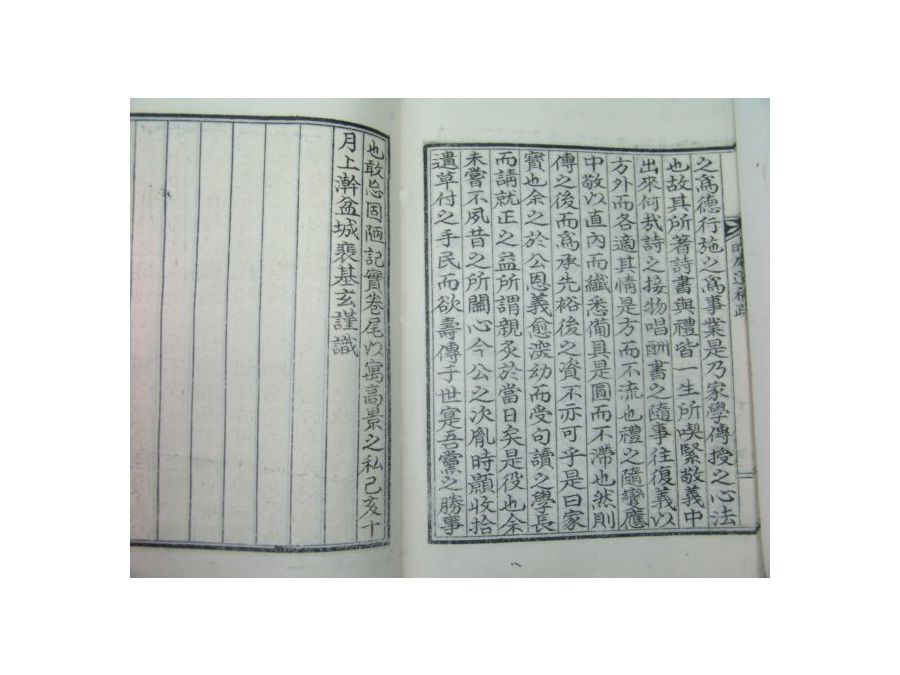 之爲德行施之爲事業是乃家學傳授之心法
也故其所著詩書與禮皆一生所喫緊敬義中
出來何哉詩之接物唱酬書之隨事往復義以
方外而各適其情是方而不流也禮之隨變應
中敬以直內而纖悉備具是圓而不滯也然則
傳之後而爲承先裕後之資不亦可乎是曰家
寶也余之於公恩義愈深幼而受句讀之學長
而請就正之益所謂親炙於當日矣是役也余
未嘗不夙昔之所關心今公之次胤時顯收拾
遺草付之手民而欲壽傳于世寔吾黨之勝事
也敢忘固陋記實卷尾以寓高景之私己亥十
月上澣盆城裵基玄謹識